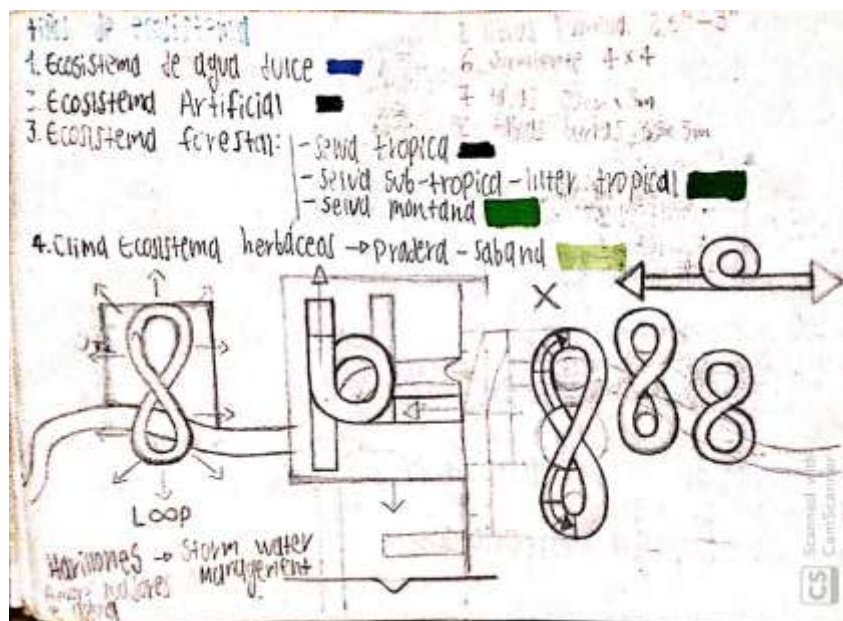 de ecosistema
1. Ecosistema de agua dulce
2. Ecosistema Artificial
3. Ecosistema forestal: - selva tropica
- selva sub-tropica - inter tropical
- selva montana
4. Clima Ecosistema herbáceos → Pradera - saband
6 4x4
7
5m
X
LOOP
→ Storm water
Management
CS Scanned with
CamScanner